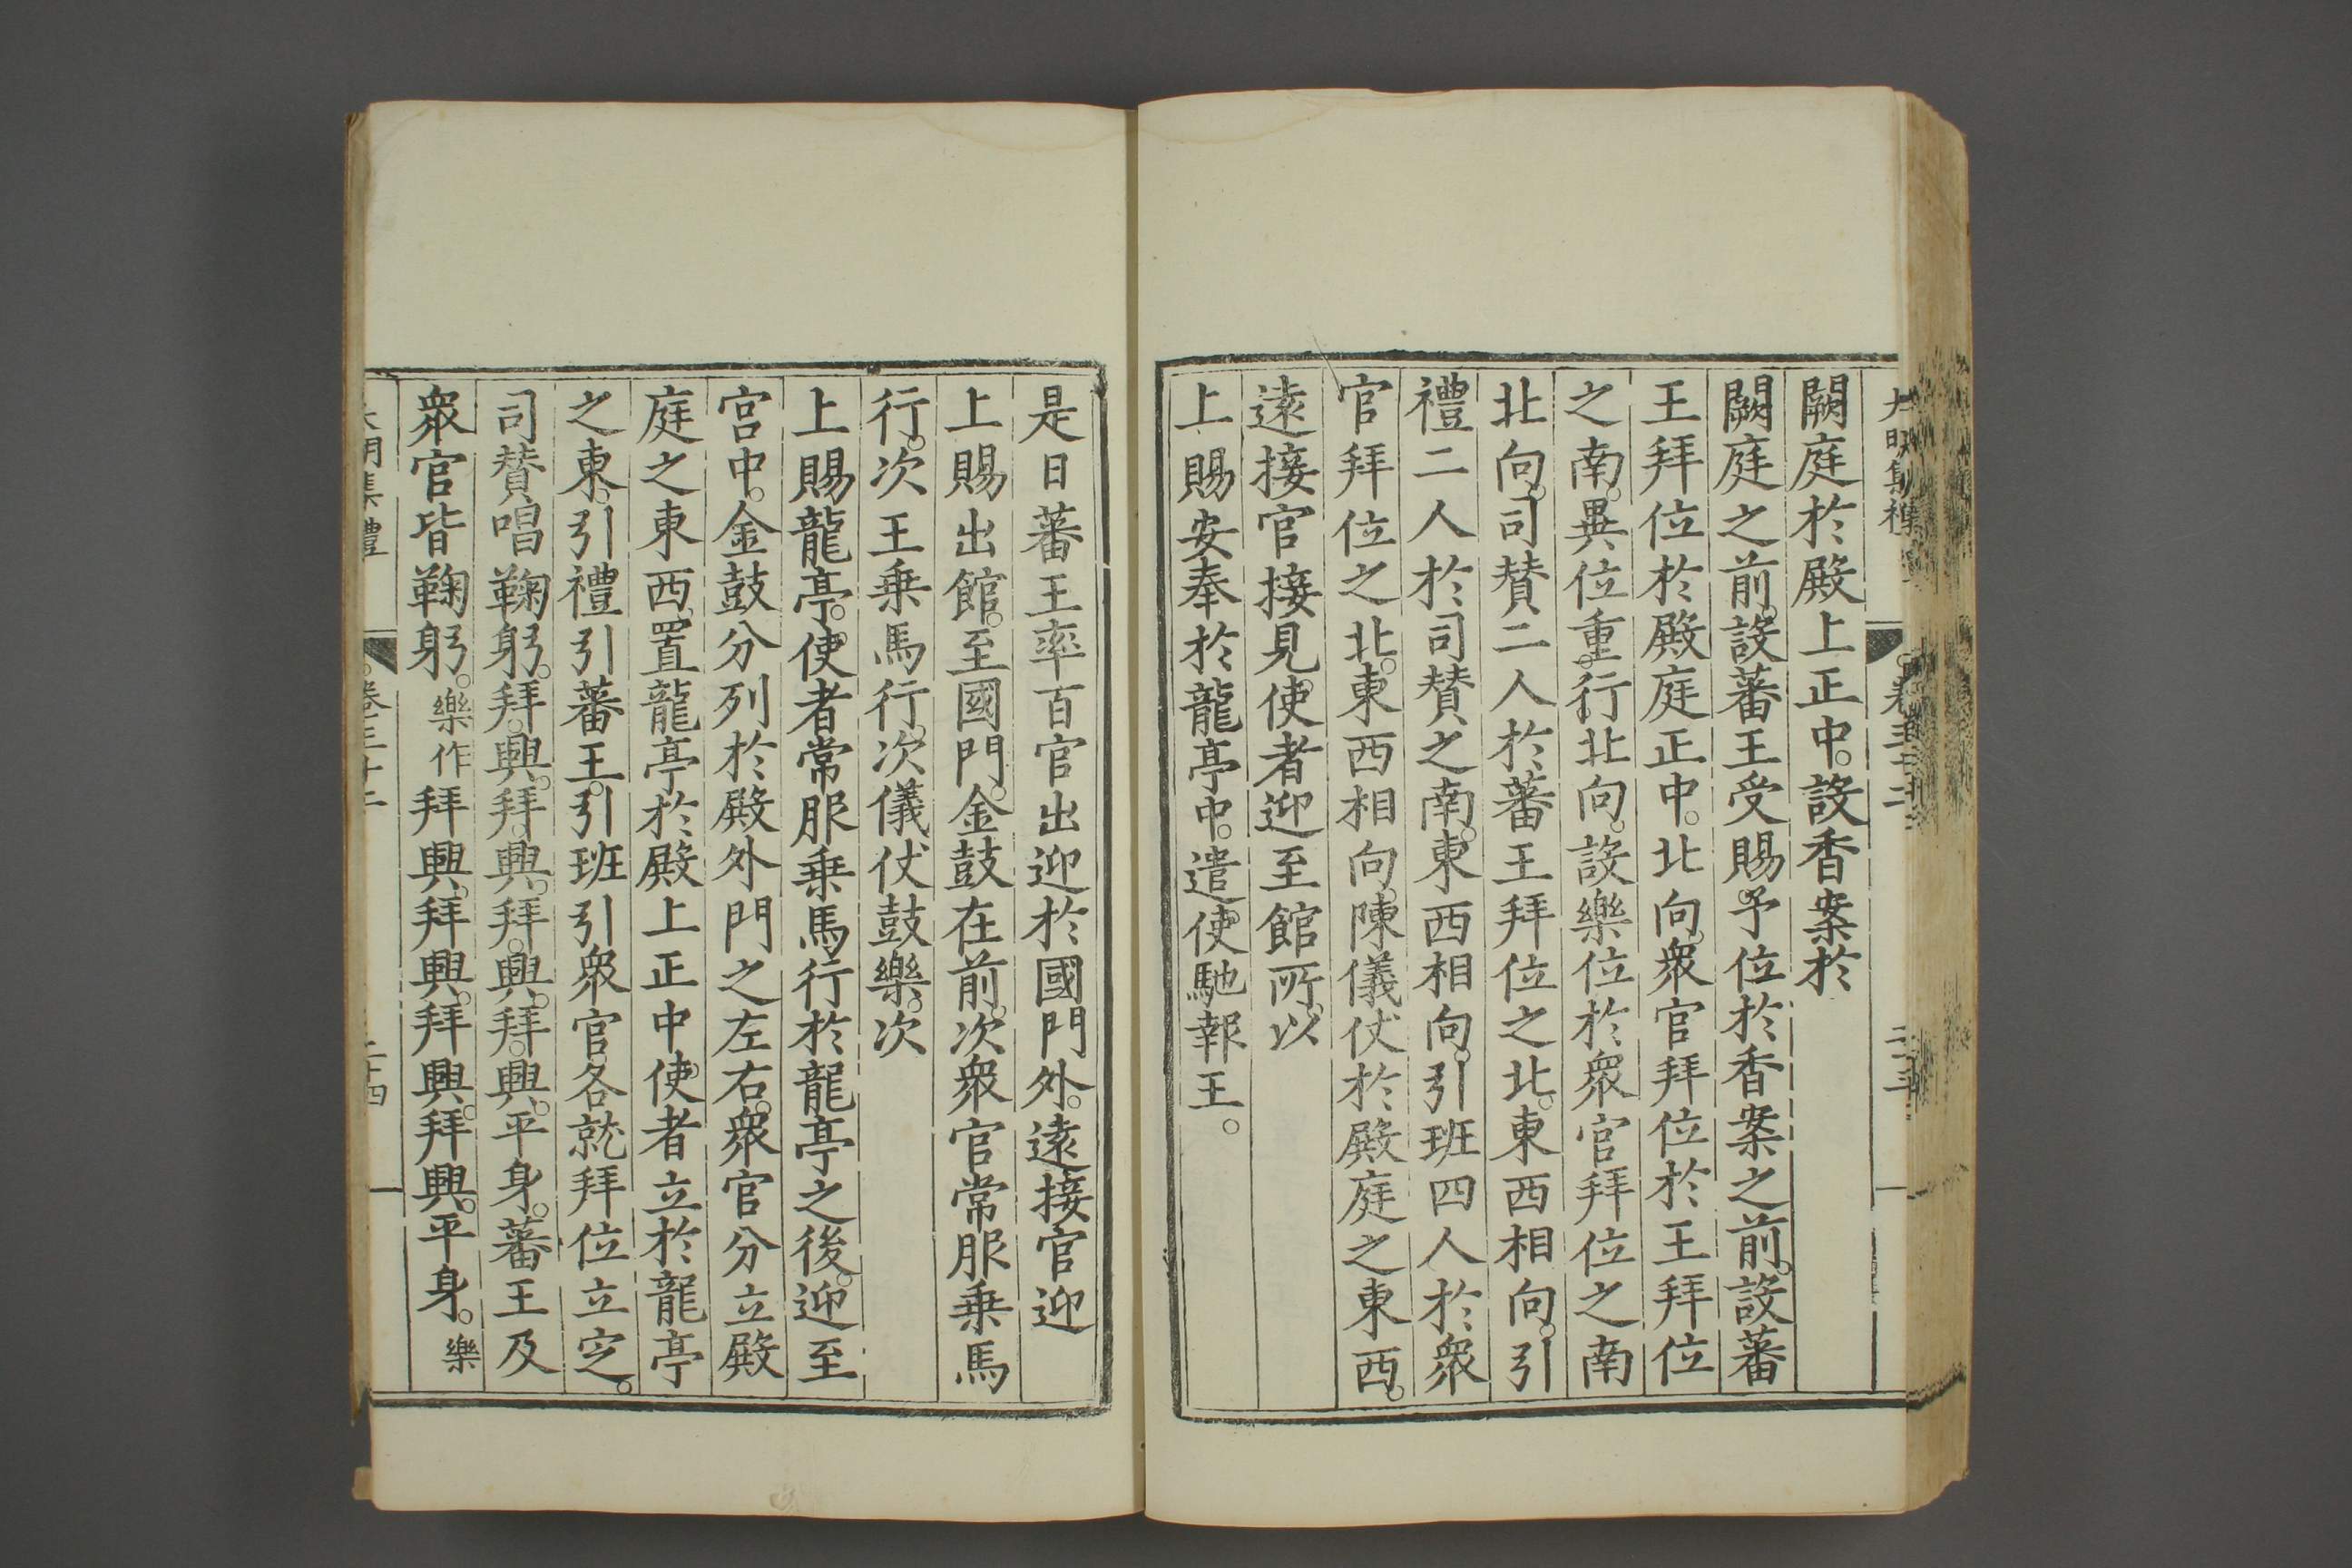 闕庭於殿上正中。設香案於
闕庭之前。設蕃王受賜予位於香案之前。設蕃
王拜位於殿庭正中。北向。衆官拜位於王拜位
之南。異位重行北向。設樂位於衆官拜位之南
北向。司贊二人於蕃王拜位之北。東西相向。引
禮二人於司贊之南。東西相向。引班四人於衆
官拜位之北。東西相向。陳儀仗於殿庭之東西。
遠接官接見使者迎至館所。以
上賜安奉於龍亭中。遣使馳報王。
是日蕃王率百官出迎於國門外。遠接官迎
上賜出館。至國門。金鼓在前。次衆官常服乗馬
行。次王乗馬行。次儀仗鼓樂。次
上賜龍亭。使者常服乗馬行於龍亭之後。迎至
宮中。金鼓分列於殿外門之左右。衆官分立殿
庭之東西。置龍亭於殿上正中。使者立於龍亭
之東。引禮引蕃王。引班引衆官各就拜位立定。
司贊唱鞠躬。拜。興。拜。興。拜。興。拜。興。平身。蕃王及
衆官皆鞠躬。樂作拜興。拜興。拜興。拜興。平身。樂
大明集禮 卷三十二 二十四